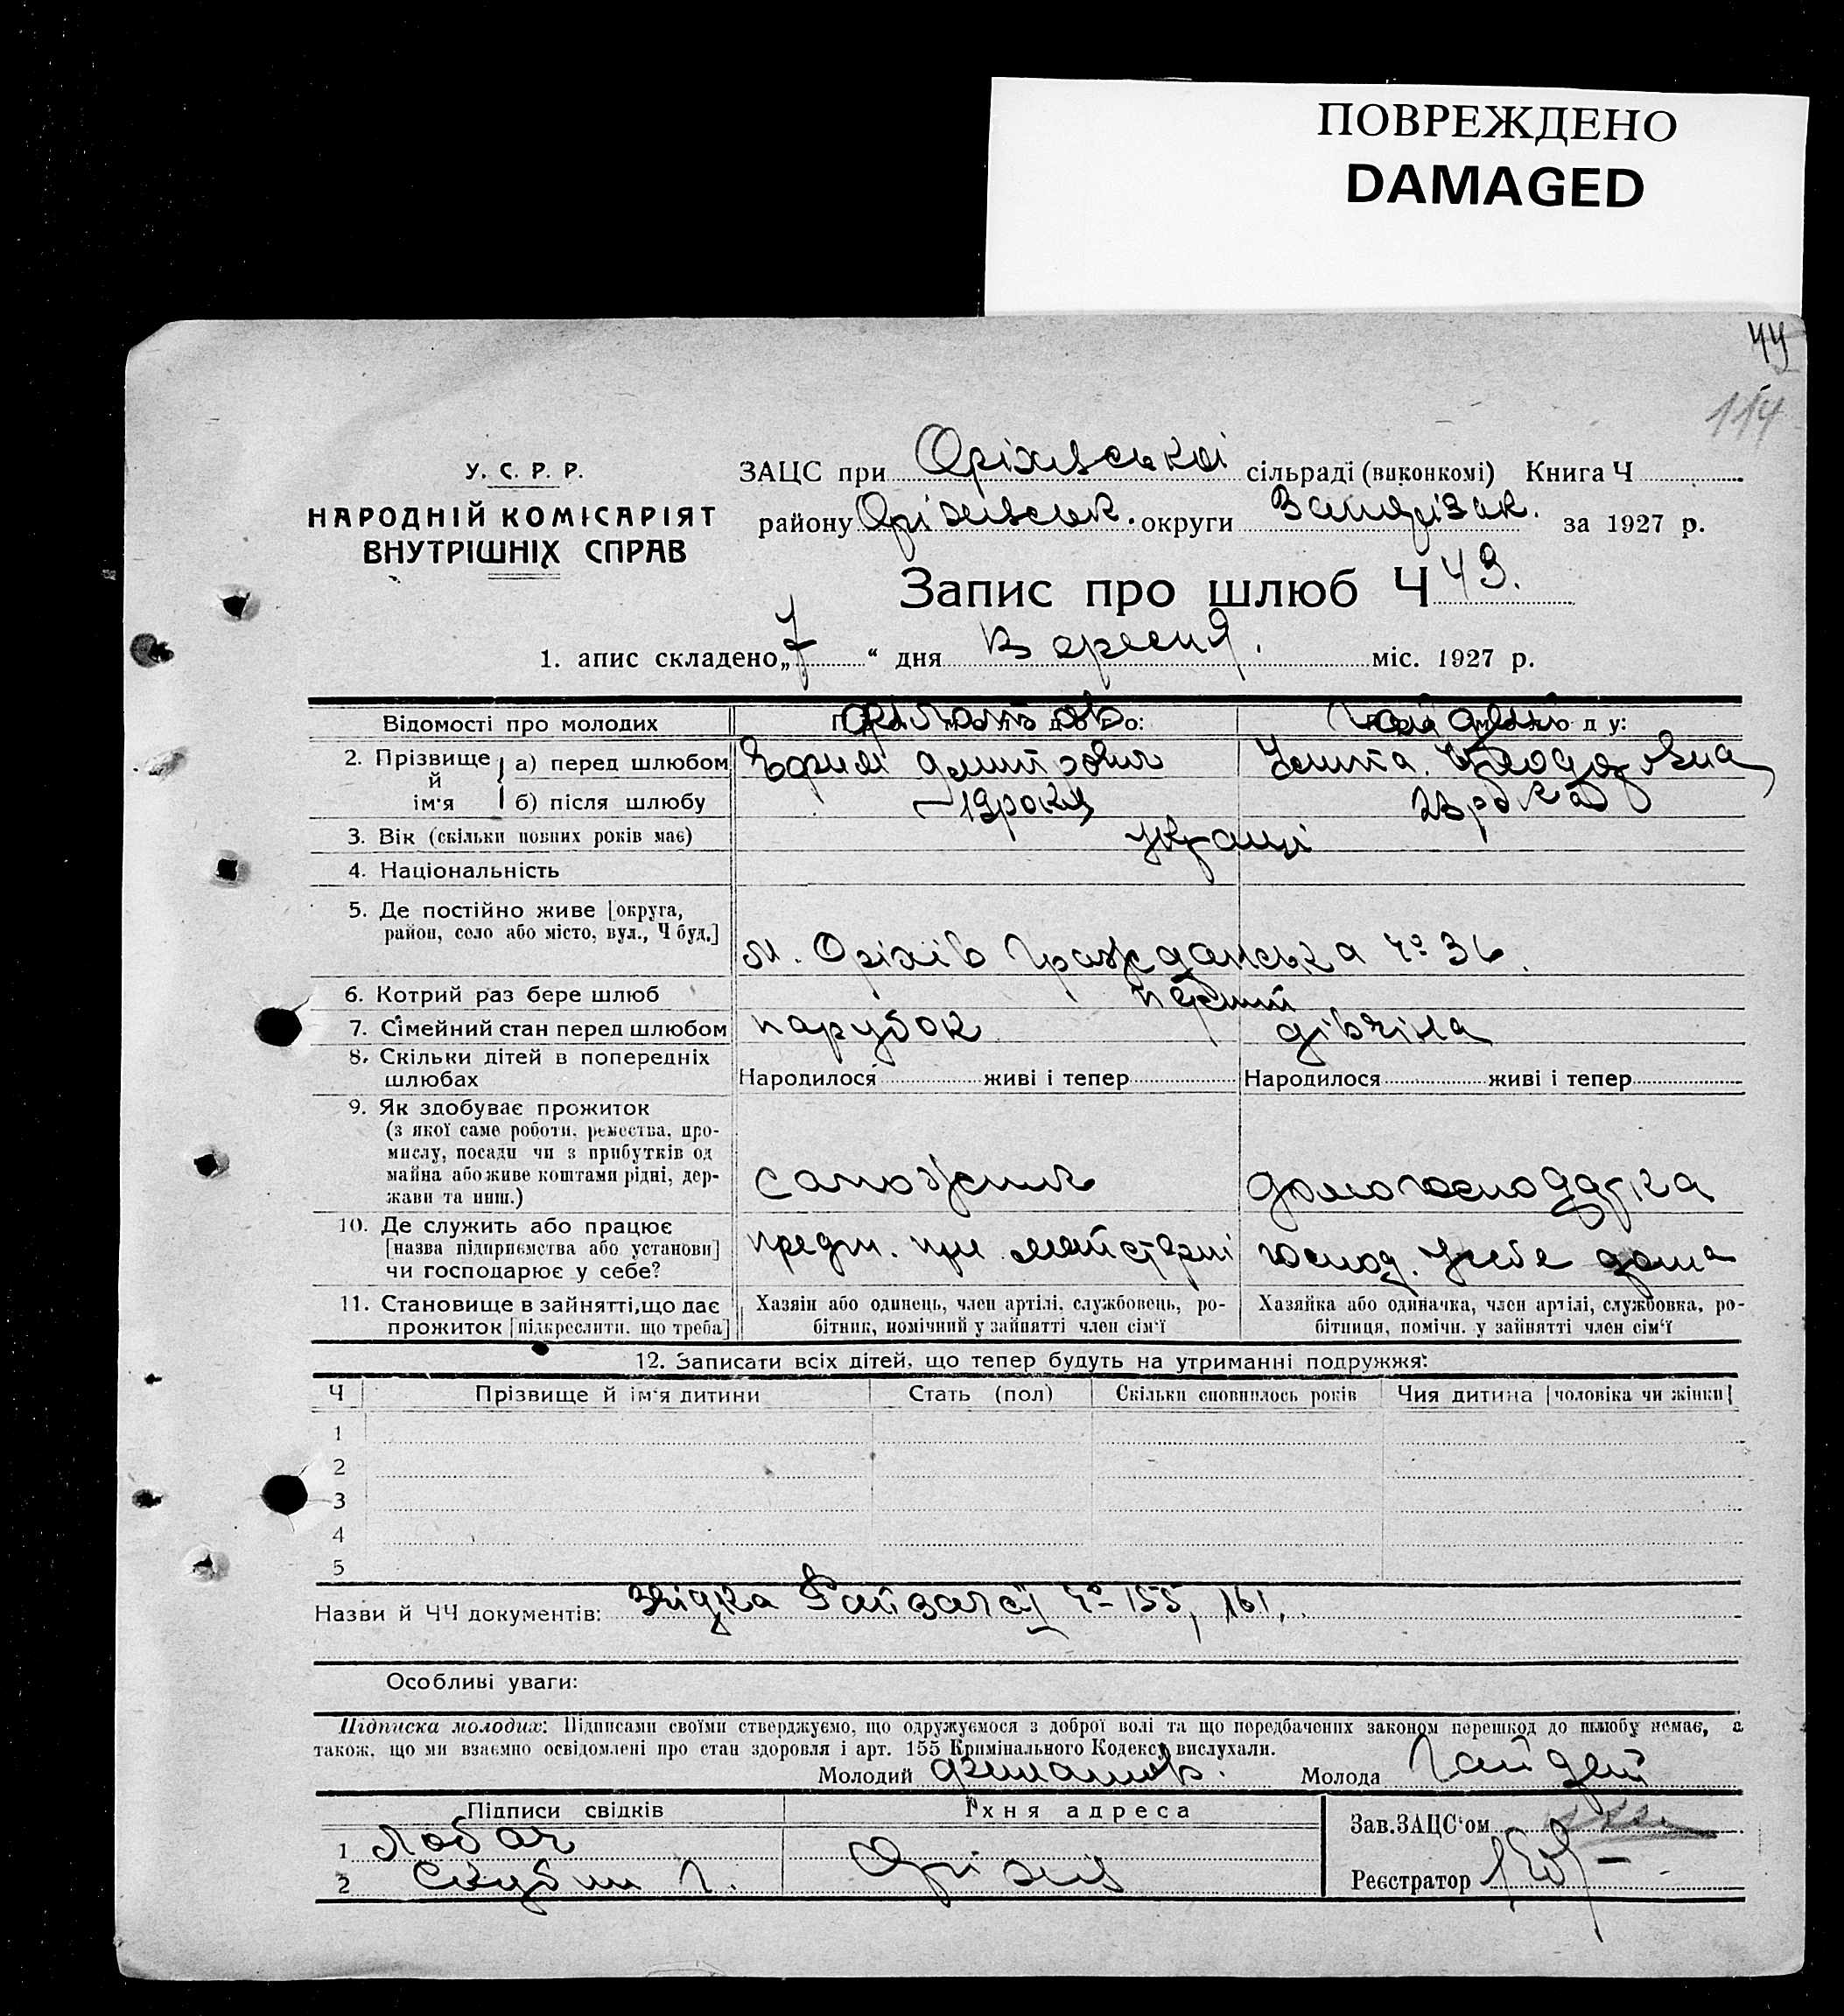 ПОВРЕЖДЕНО
DAMAGED
44
114
У. С. Р. Р.
НАРОДНІЙ КОМІСАРІЯТ
ВНУТРІШНІХ СПРАВ
ЗАЦС при Оріхівської сільраді (виконкомі) Книга Ч
району Оріхівськ. округи за 1927 р.
Запис про шлюб Ч 43.
1. апис складено „7“ дня Вересня. міс. 1927 р.
Відомості про молодих
2. Прізвище й ім'я
а) перед шлюбом Дмитрович Гайдей
б) після шлюбу
3. Вік (скільки повних років має) 19 років
4. Національність українці
5. Де постійно живе [округа,
район, село або місто, вул., Ч буд.] м. Оріхів Гражданська Ч° 36.
6. Котрий раз бере шлюб перший
7. Сімейний стан перед шлюбом парубок дівчина
8. Скільки дітей в попередніх
шлюбах Народилося живі і тепер Народилося живі і тепер
9. Як здобуває прожиток
(з якої саме роботи, ремества, про-
мислу, посади чи з прибутків од
майна або живе коштами рідні, дер-
жави та инш.) домогосподарка
10. Де служить або працює
[назва підприємства або установи]
чи господарює у себе? при майстерні господ. у себе дома
11. Становище в зайнятті, що дає
прожиток [підкреслити. що треба]
Хазяїн або одинець, член артілі, службовець, ро-
бітник, помічний у зайнятті член сім'ї
Хазяйка або одиначка, член артілі, службовка, ро-
бітниця, помічн. у зайнятті член сім'ї
12. Записати всіх дітей, що тепер будуть на утриманні подружжя:
Ч Прізвище й ім'я дитини Стать (пол) Скільки сповнилось років Чия дитина [чоловіка чи жінки]
1
2
3
4
5
Назви й ЧЧ документів: Ч° 155, 161,
Особливі уваги:
Підписка молодих: Підписами своїми стверджуємо, що одружуємося з доброї волі та що передбачених законом перешкод до шлюбу немає, а
також, що ми взаємно освідомлені про стан здоровля і арт. 155 Кримінального Кодексу вислухали.
Молодий Молода Гайдей
Підписи свідків Їхня адреса
1 Лобач
2 Оріхів
Зав. ЗАЦС'ом
Реєстратор